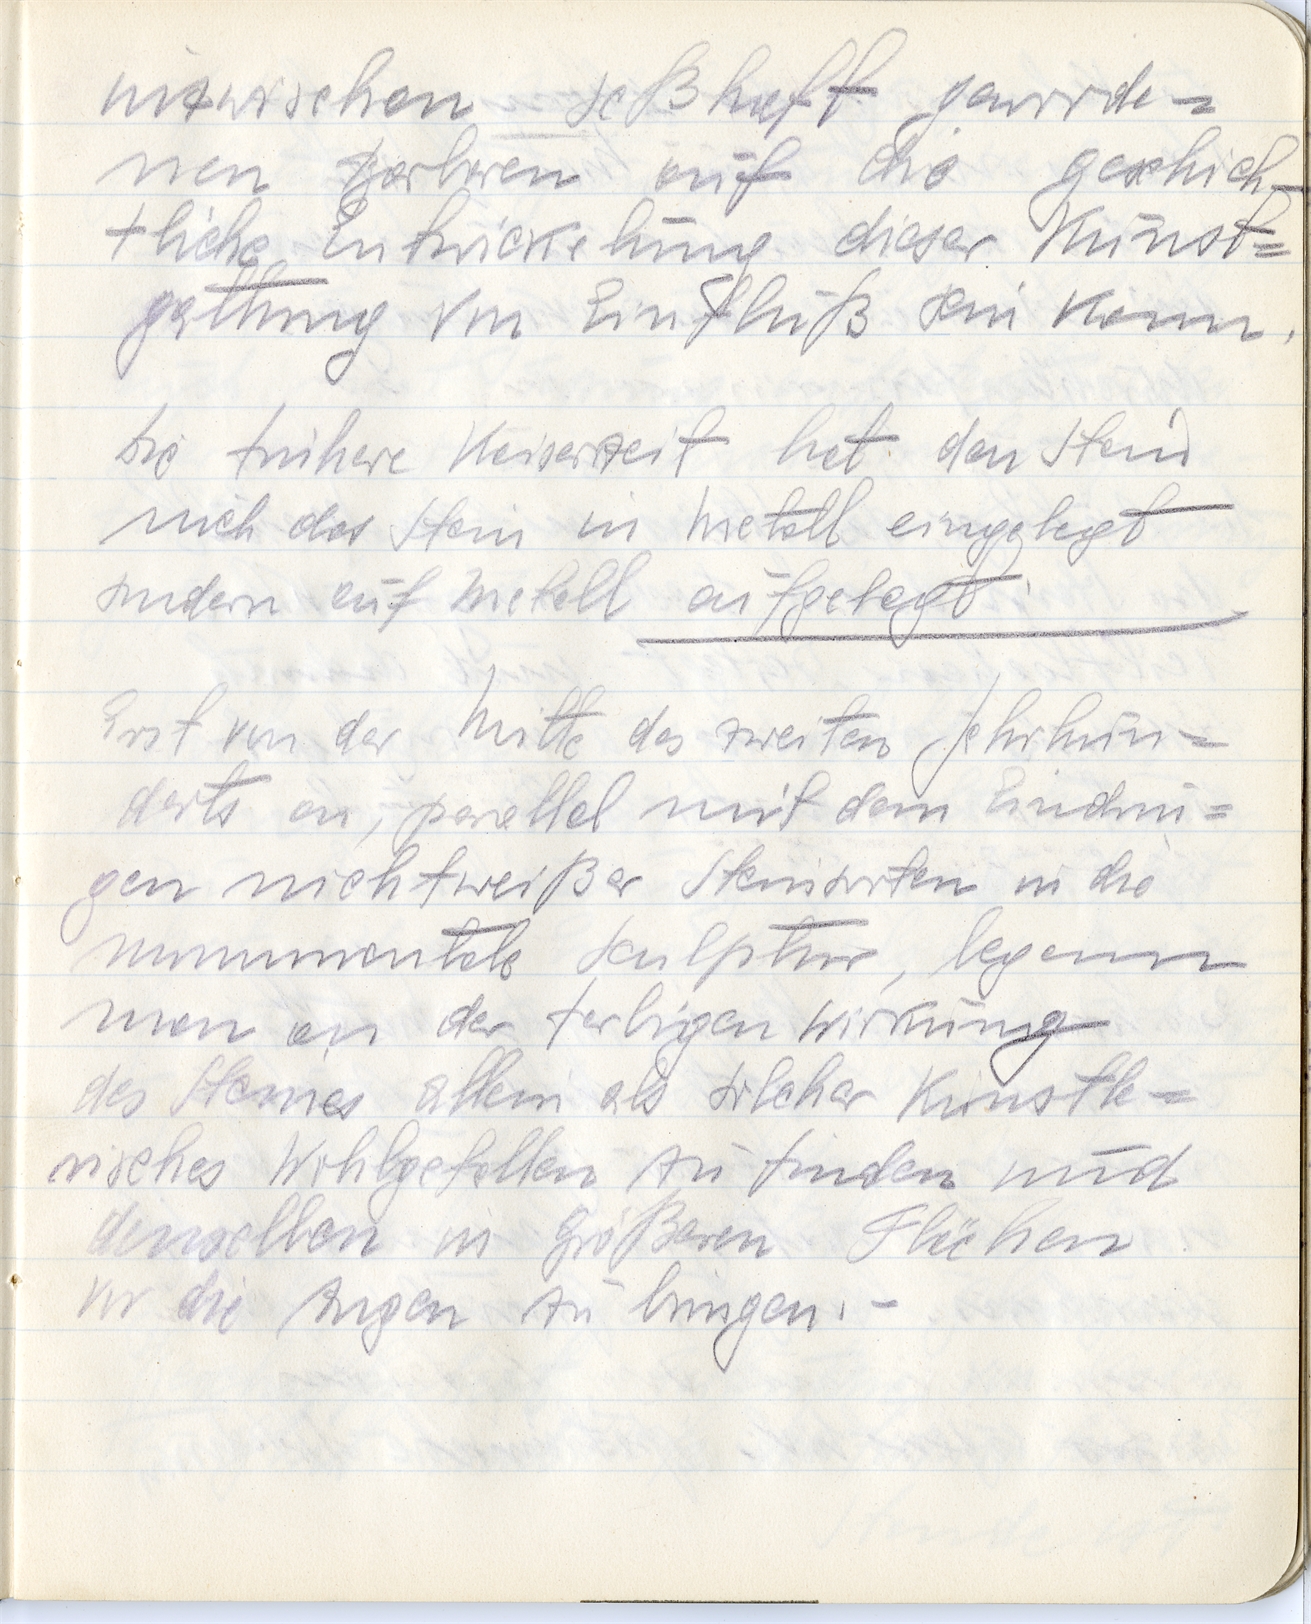 inzwischen seßhaft geworde-
nen Barbaren auf die geschich-
tliche Entwickelung dieser Kunst=
gattung von Einfluß sein kann.
Die frühere Kaiserzeit hat den Stein
nich das Stein in Metall eingelegt
sondern auf Metall aufgelegt.
Erst von der Mitte des zweiten Jahrhun=
derts an, parallel mit dem Eindrin=
gen nichtweißer Steinsorten in die
monumentale Sculptur, begann
man an der farbigen Wirkung
des Steines allein als solcher Künstle=
risches Wohlgefallen zu finden und
denselben in größeren Flächen
vor die Augen zu bringen.-